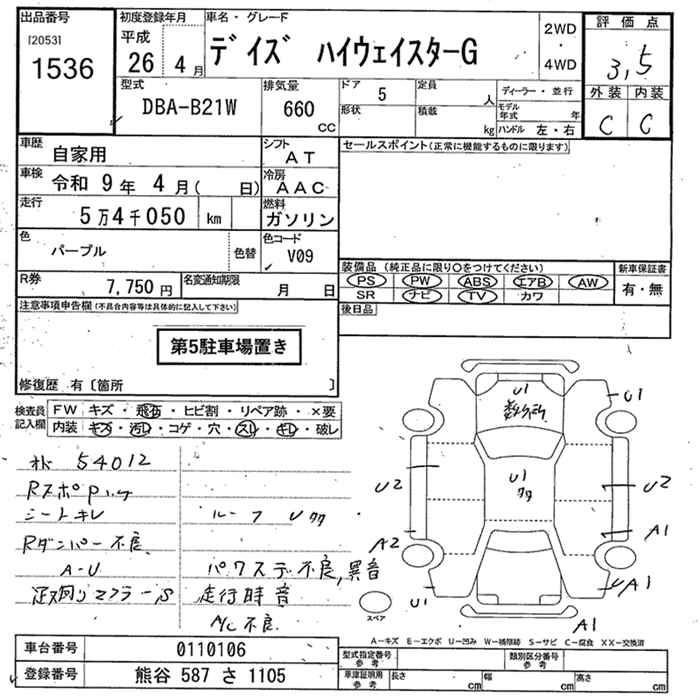 出品番号
[2053]
1536
初度登録年月
平成
26年 4月
車名・グレード
デイズ ハイウェイスターG
2WD
・
4WD
評価点
3,5
外装 内装
C C
型式
DBA-B21W
排気量
660
CC
ドア 5
形状
定員
人
積載
kg
ディーラー・並行
モデル年式 年
ハンドル 左・右
車歴
自家用
シフト
AT
車検
令和 9年 4月( 日)
冷房
AAC
走行
5万4千050 km
燃料
ガソリン
色
パープル
色替
色コード
V09
R券
7,750円
名変通知期限
月 日
セールスポイント(正常に機能するものに限ります)
装備品(純正品に限り〇をつけてください)
PS PW ABS エアB AW
SR ナビ TV カワ
新車保証書
有・無
後日品
注意事項申告欄(不具合内容等は具体的に記入して下さい)
第5駐車場置き
修復歴 有〔箇所 〕
検査員記入欄
FW キズ・飛石・ヒビ割・リペア跡・×要
内装 キズ・汚レ・コゲ・穴・スレ・キレ・破レ
54012
シートキレ
ルーフ U多
Rダンパー不良
A-U
パワステ不良,異音
走行時音
A/C不良
U1
数ヶ所
U1
U1
多
U2
U2
A2
A1
U1
UA1
A1
スペア
A-キズ E-エクボ U-凹み W-補修跡 S-サビ C-腐食 XX-交換済
車台番号 0110106
登録番号 熊谷 587 さ 1105
型式指定番号 参考
類別区分番号 参考
車庫証明用 参考
長さ cm
幅 cm
高さ cm